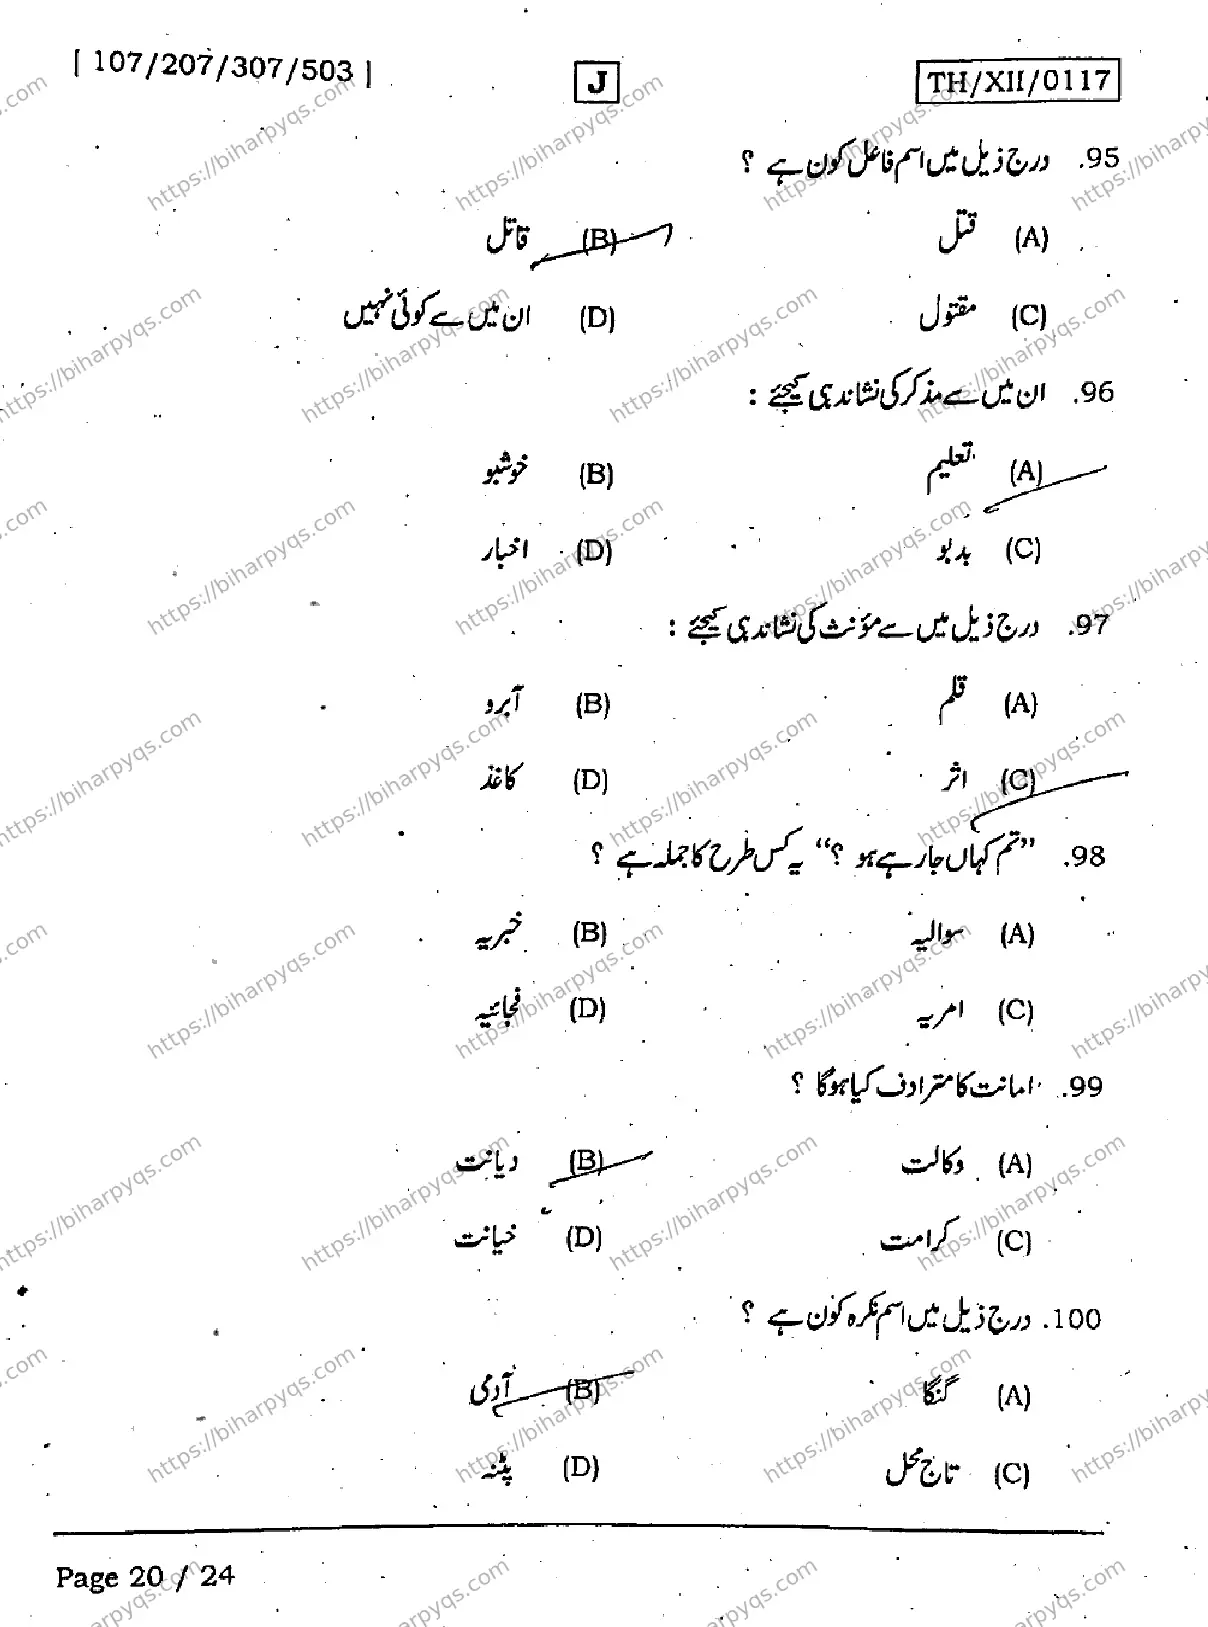 [ 107/207/307/503 ]
J
TH/XII/0117
95. درج ذیل میں اسم فاعل کون ہے ؟
(A) قتل (B) قاتل
(C) مقتول (D) ان میں سے کوئی نہیں
96. ان میں سے مذکر کی نشاندہی کیجئے :
(A) تعلیم (B) خوشبو
(C) بدبو (D) اخبار
97. درج ذیل میں سے مؤنث کی نشاندہی کیجئے :
(A) قلم (B) آبرو
(C) اثر (D) کاغذ
98. ”تم کہاں جا رہے ہو ؟“ یہ کس طرح کا جملہ ہے ؟
(A) سوالیہ (B) خبریہ
(C) امریہ (D) فجائیہ
99. امانت کا مترادف کیا ہوگا ؟
(A) وکالت (B) دیانت
(C) کرامت (D) خیانت
100. درج ذیل میں اسم نکرہ کون ہے ؟
(A) گنگا (B) آدمی
(C) تاج محل (D) پٹنہ
Page 20 / 24
https://biharpyqs.com